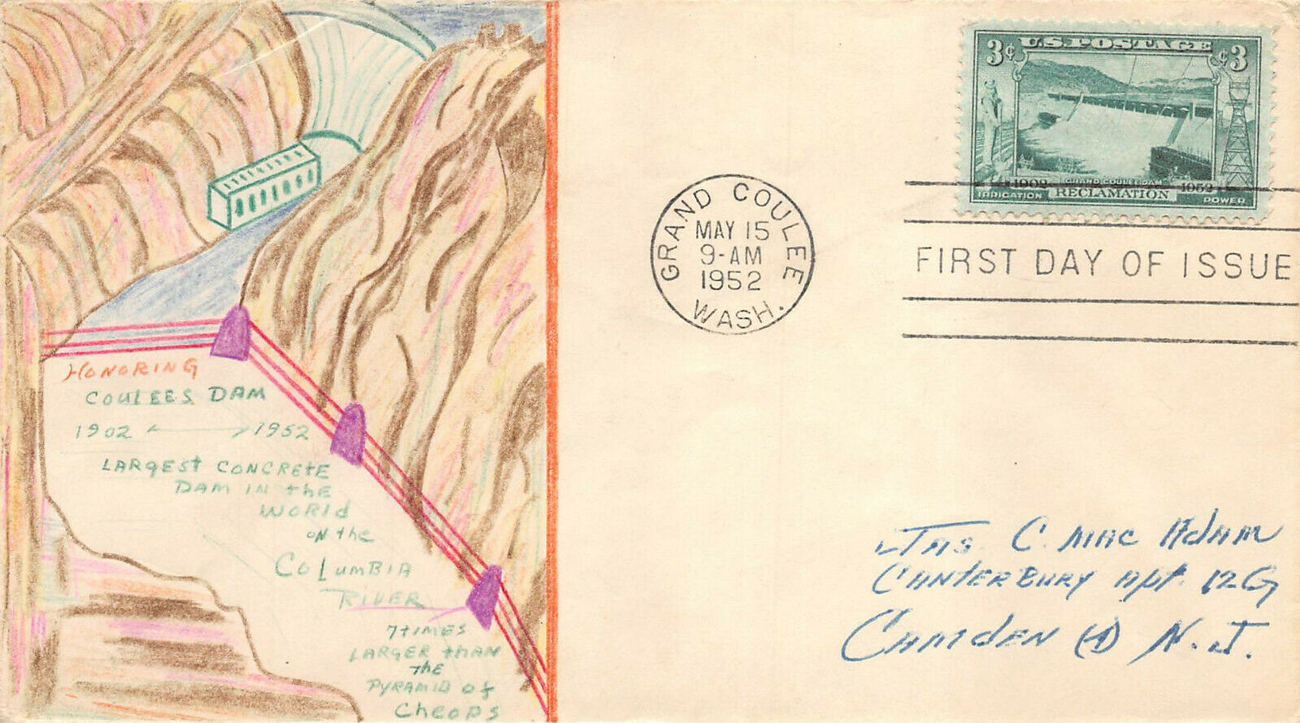 HONORING
COULEES DAM
1902 ← → 1952
LARGEST CONCRETE
DAM IN the
WORLD
ON the
COLUMBIA
RIVER
7 tIMES
LARGER tHAN
the
PYRAMID of
Cheops
3¢ U.S. POSTAGE ¢3
GRAND COULEE DAM
1902 RECLAMATION 1952
IRRIGATION POWER
GRAND COULEE
MAY 15
9-AM
1952
WASH.
FIRST DAY OF ISSUE
JAS. C. MAC ADAM
CANTERBURY APT. 12G
CAMDEN (4) N.J.